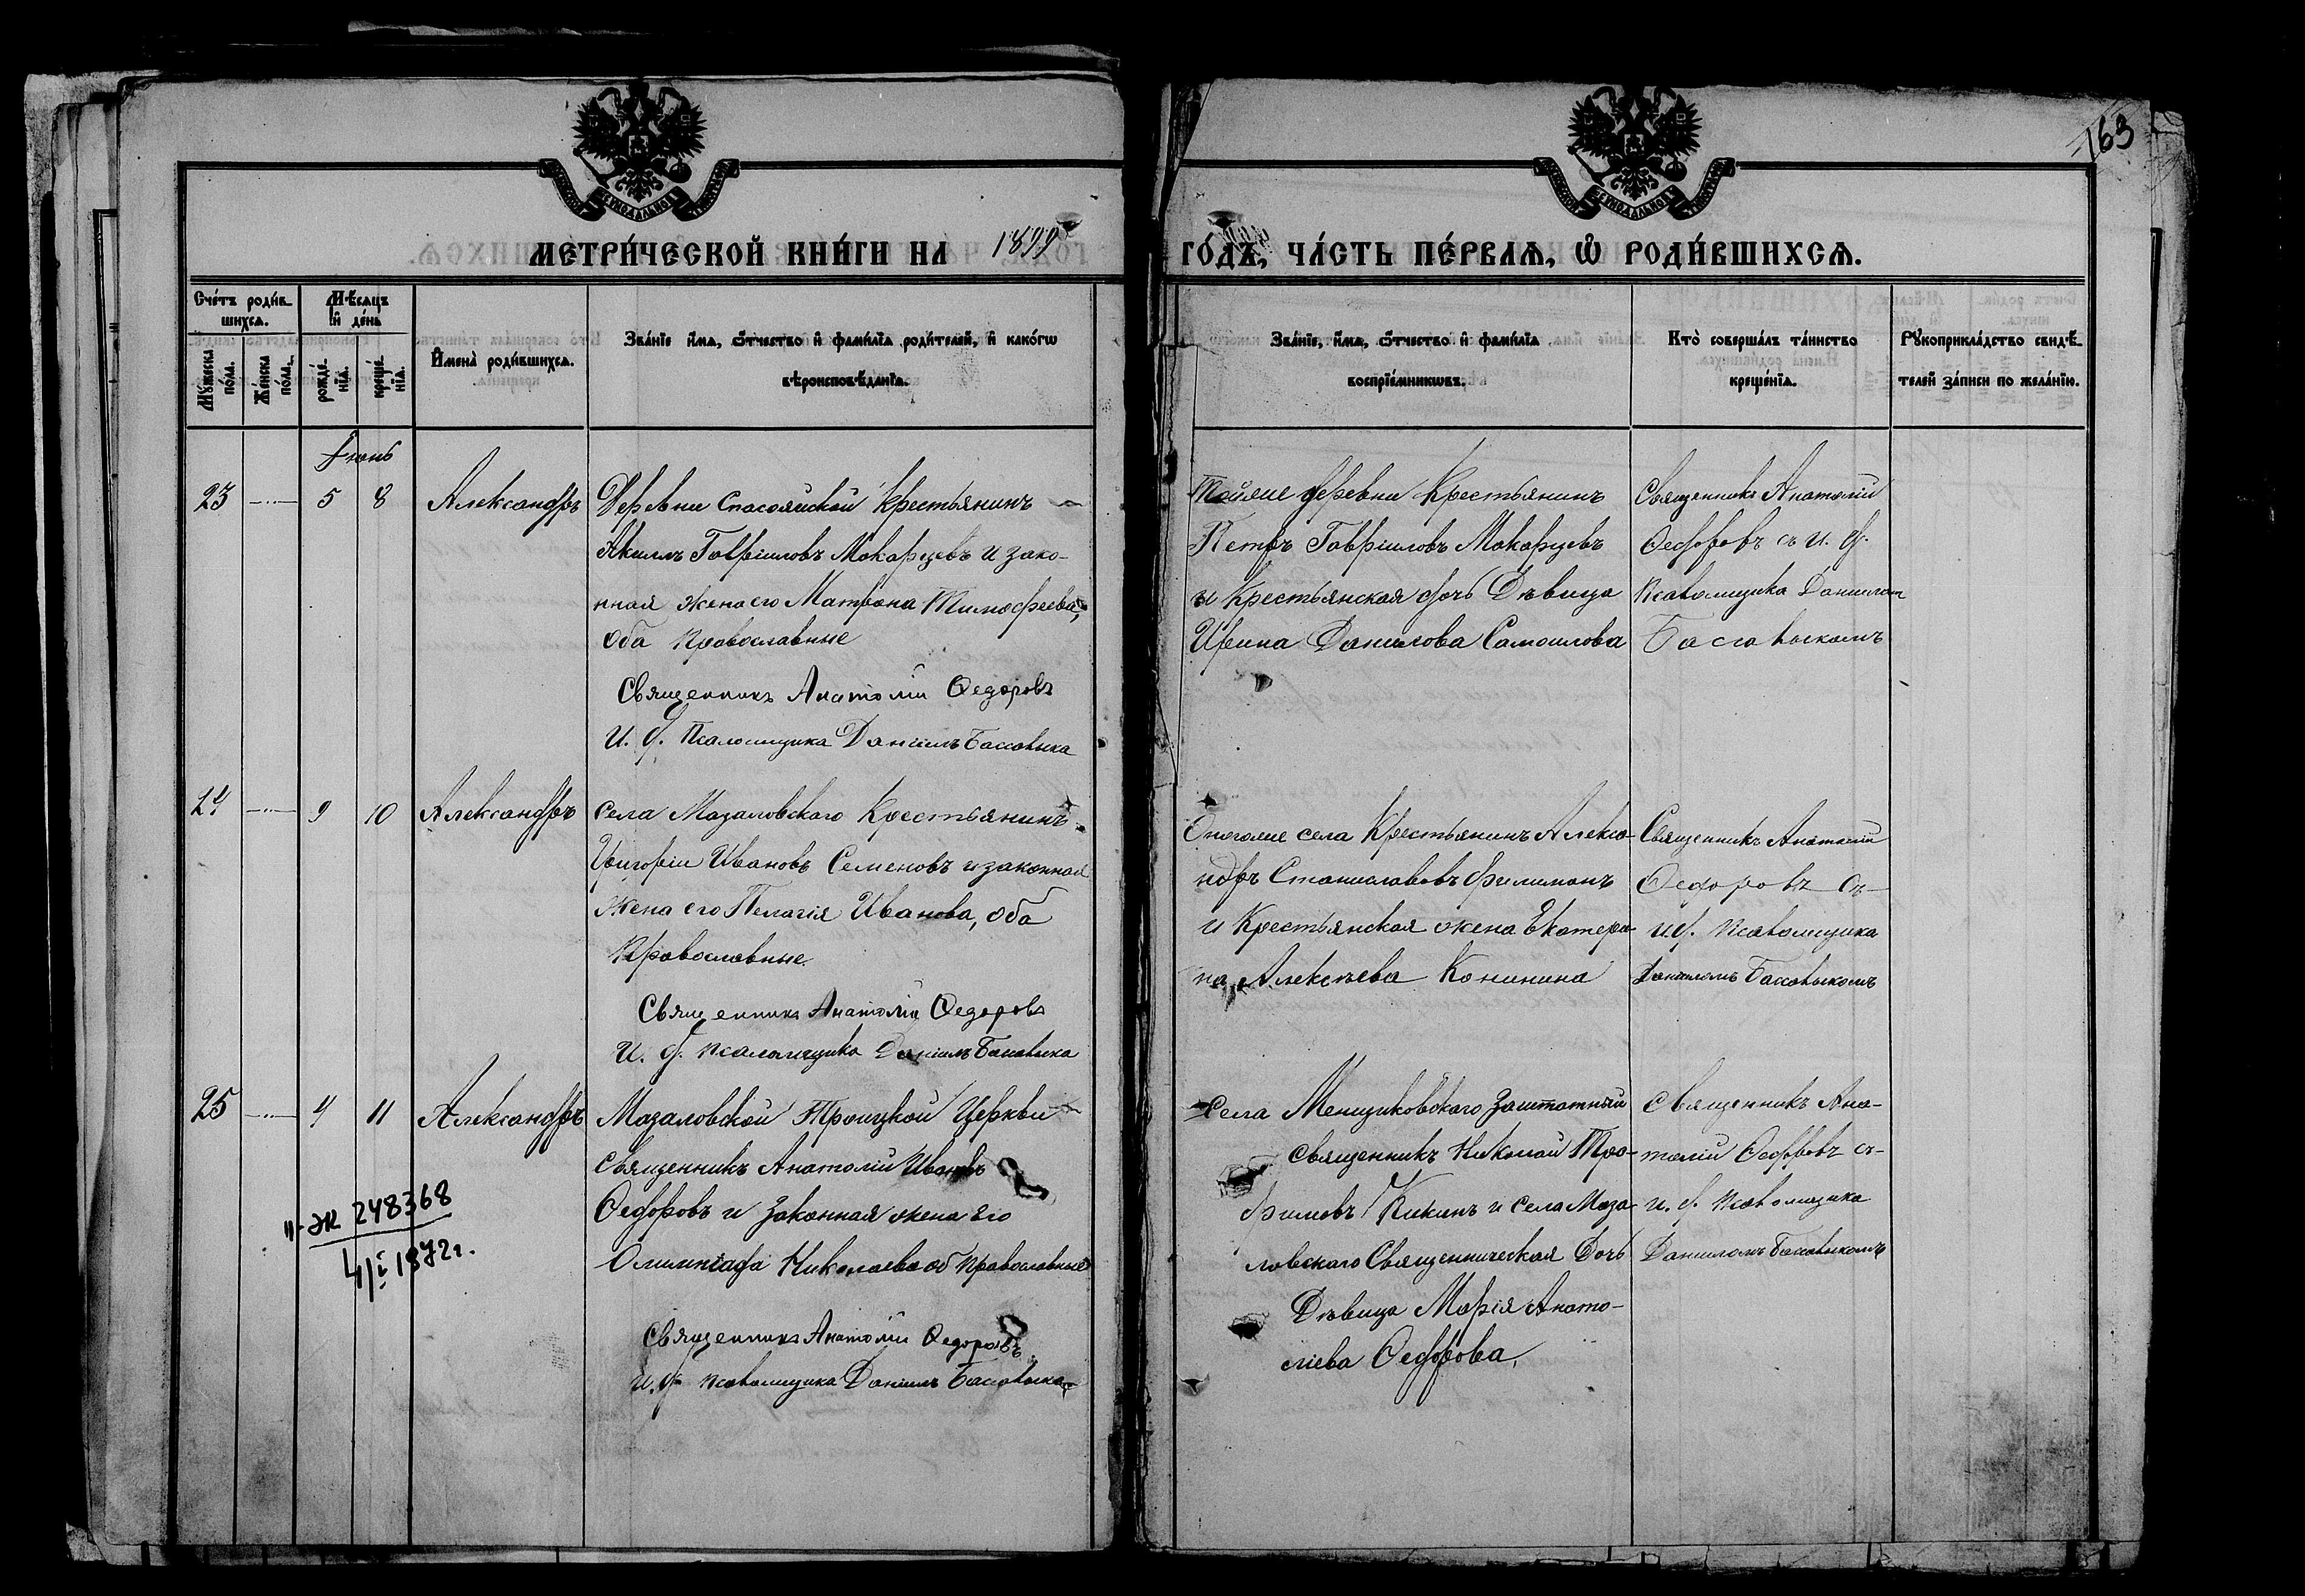 163
МЕТРИ́ЧЕСКОЙ КНИ́ГИ НА 1899
ГО́ДЪ, ЧА́СТЬ ПЕ́РВАѦ, Ѡ҆ РОДИ́ВШИХСѦ.
Сче́тъ роди́в-
шихсѧ.
Мѣ́сѧцъ
и҆ де́нь
Мꙋ́жеска по́ла.
Же́нска по́ла.
рожде́-
нїѧ.
креще́-
нїѧ.
И҆мена̀ роди́вшихсѧ.
Зва́нїе и҆́мѧ, ѻ҆́тчество и҆ фами́лїѧ роди́телей, и҆ како́гѡ
вѣроисповѣ́данїѧ.
Зва́нїе, и҆́мѧ, ѻ҆́тчество и҆ фами́лїѧ
воспрїе́мникѡвъ.
Кто̀ соверша́лъ та́инство
креще́нїѧ.
Рꙋкоприкла́дство свидѣ́-
телей за́писи по жела́нїю.
Іюнь
23 5 8 Александръ
Деревни Спасояйской Крестьянинъ
Акимъ Гавріиловъ Макарцевъ и зако-
нная жена его Матрона Тимофеева,
оба Православные
Священникъ Анатолій Ѳедоровъ
И. д. Псаломщика Даніилъ Басовыка
Тойже деревни Крестьянинъ
Петръ Гавріиловъ Макарцевъ
и Крестьянская дочь Дѣвица
Ирина Данилова Самоилова
Священникъ Анатолій
Ѳедоровъ съ и. д.
Псаломщика Даниломъ
Басовыкомъ
24 9 10 Александръ
села Мазаловскаго Крестьянинъ
Григорій Ивановъ Семеновъ и законная
жена его Пелагія Иванова, оба
Православные.
Священникъ Анатолій Ѳедоровъ
И. д. псаломщика Даніилъ Басовыка
Онагоже села Крестьянинъ Алекса-
ндръ Станиславовъ Филимонъ
и Крестьянская жена Екатери-
на Алексѣева Конинина
Священникъ Анатолій
Ѳедоровъ съ
и. д. псаломщика
Даниломъ Басовыкомъ
25 4 11 Александръ
Мазаловской Троицкой Церкви
священникъ Анатолій Ивановъ
Ѳедоровъ и законная жена его
Олимпіада Николаева об православные
Священникъ Анатолій Ѳедоровъ
И. д. псаломщика Даніилъ Басовыка
II-ЭК 248368
4/I 1972г.
села Менщиковскаго заштатный
священникъ Николай Тро-
фимовъ Кикинъ и села Маза-
ловскаго Священническая Дочь
Дѣвица Марія Анато-
ліева Ѳедорова.
Священникъ Ана-
толій Ѳедоровъ съ
и. д. псаломщика
Даниломъ Басовыкомъ